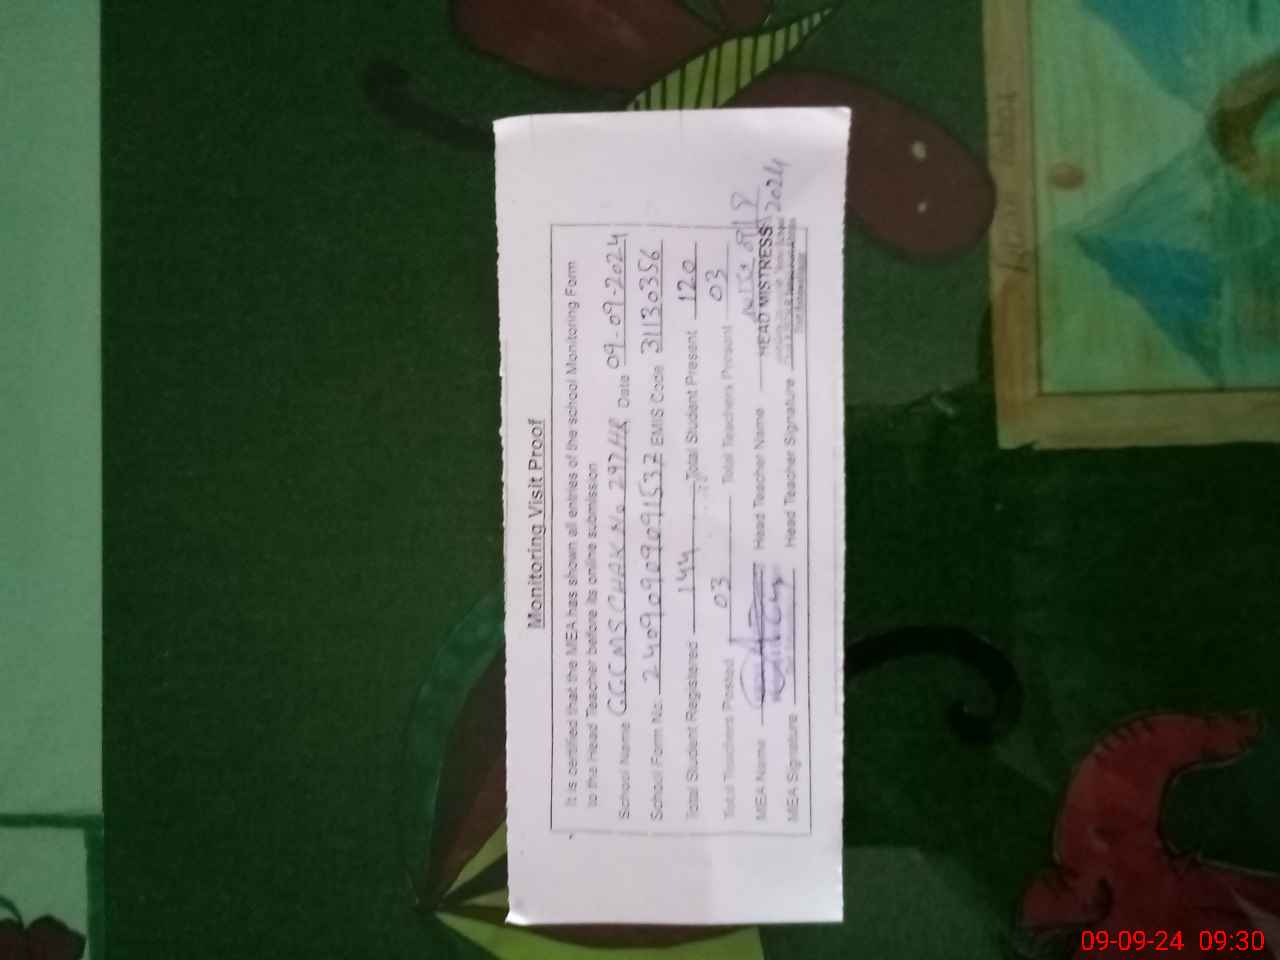 Monitoring Visit Proof
It is certified that the MEA has shown all entries of the school Monitoring Form
to the Head Teacher before its online submission
School Name GGCMS CHAK No 297/HR Date 09-09-2024
School Form No. 2409090909153 EMIS Code 31130356
Total Student Registered 144 Total Student Present 120
Total Teachers Posted 03 Total Teachers Present 03
MEA Name Head Teacher Name
HEAD MISTRESS 2024
MEA Signature Head Teacher Signature
09-09-24 09:30